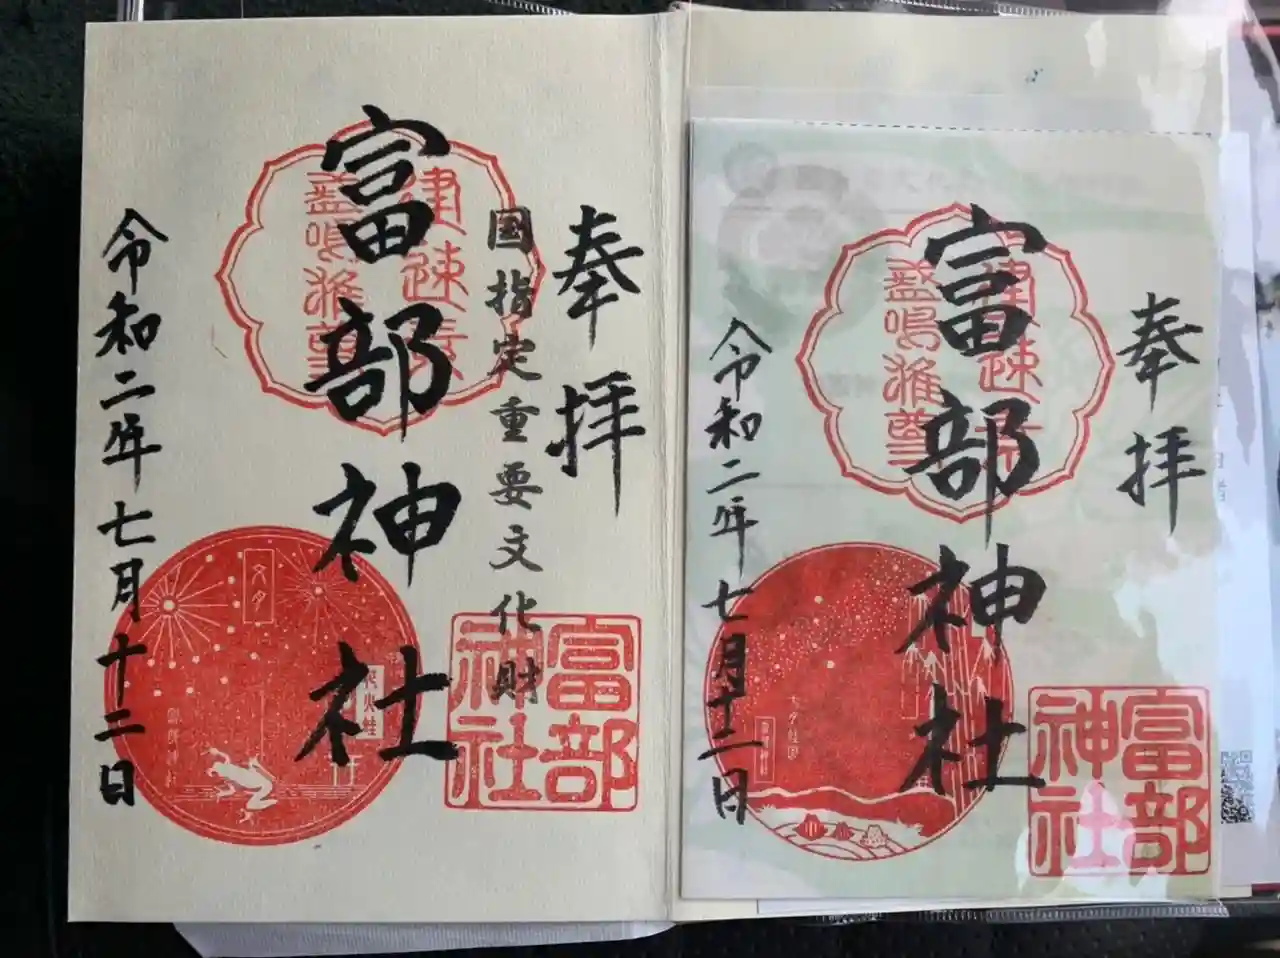 奉拝
国指定重要文化財
富部神社
建速
富部
神社
花火蛙
令和二年七月十二日
奉拝
富部神社
建速
富部
神社
令和二年七月十二日